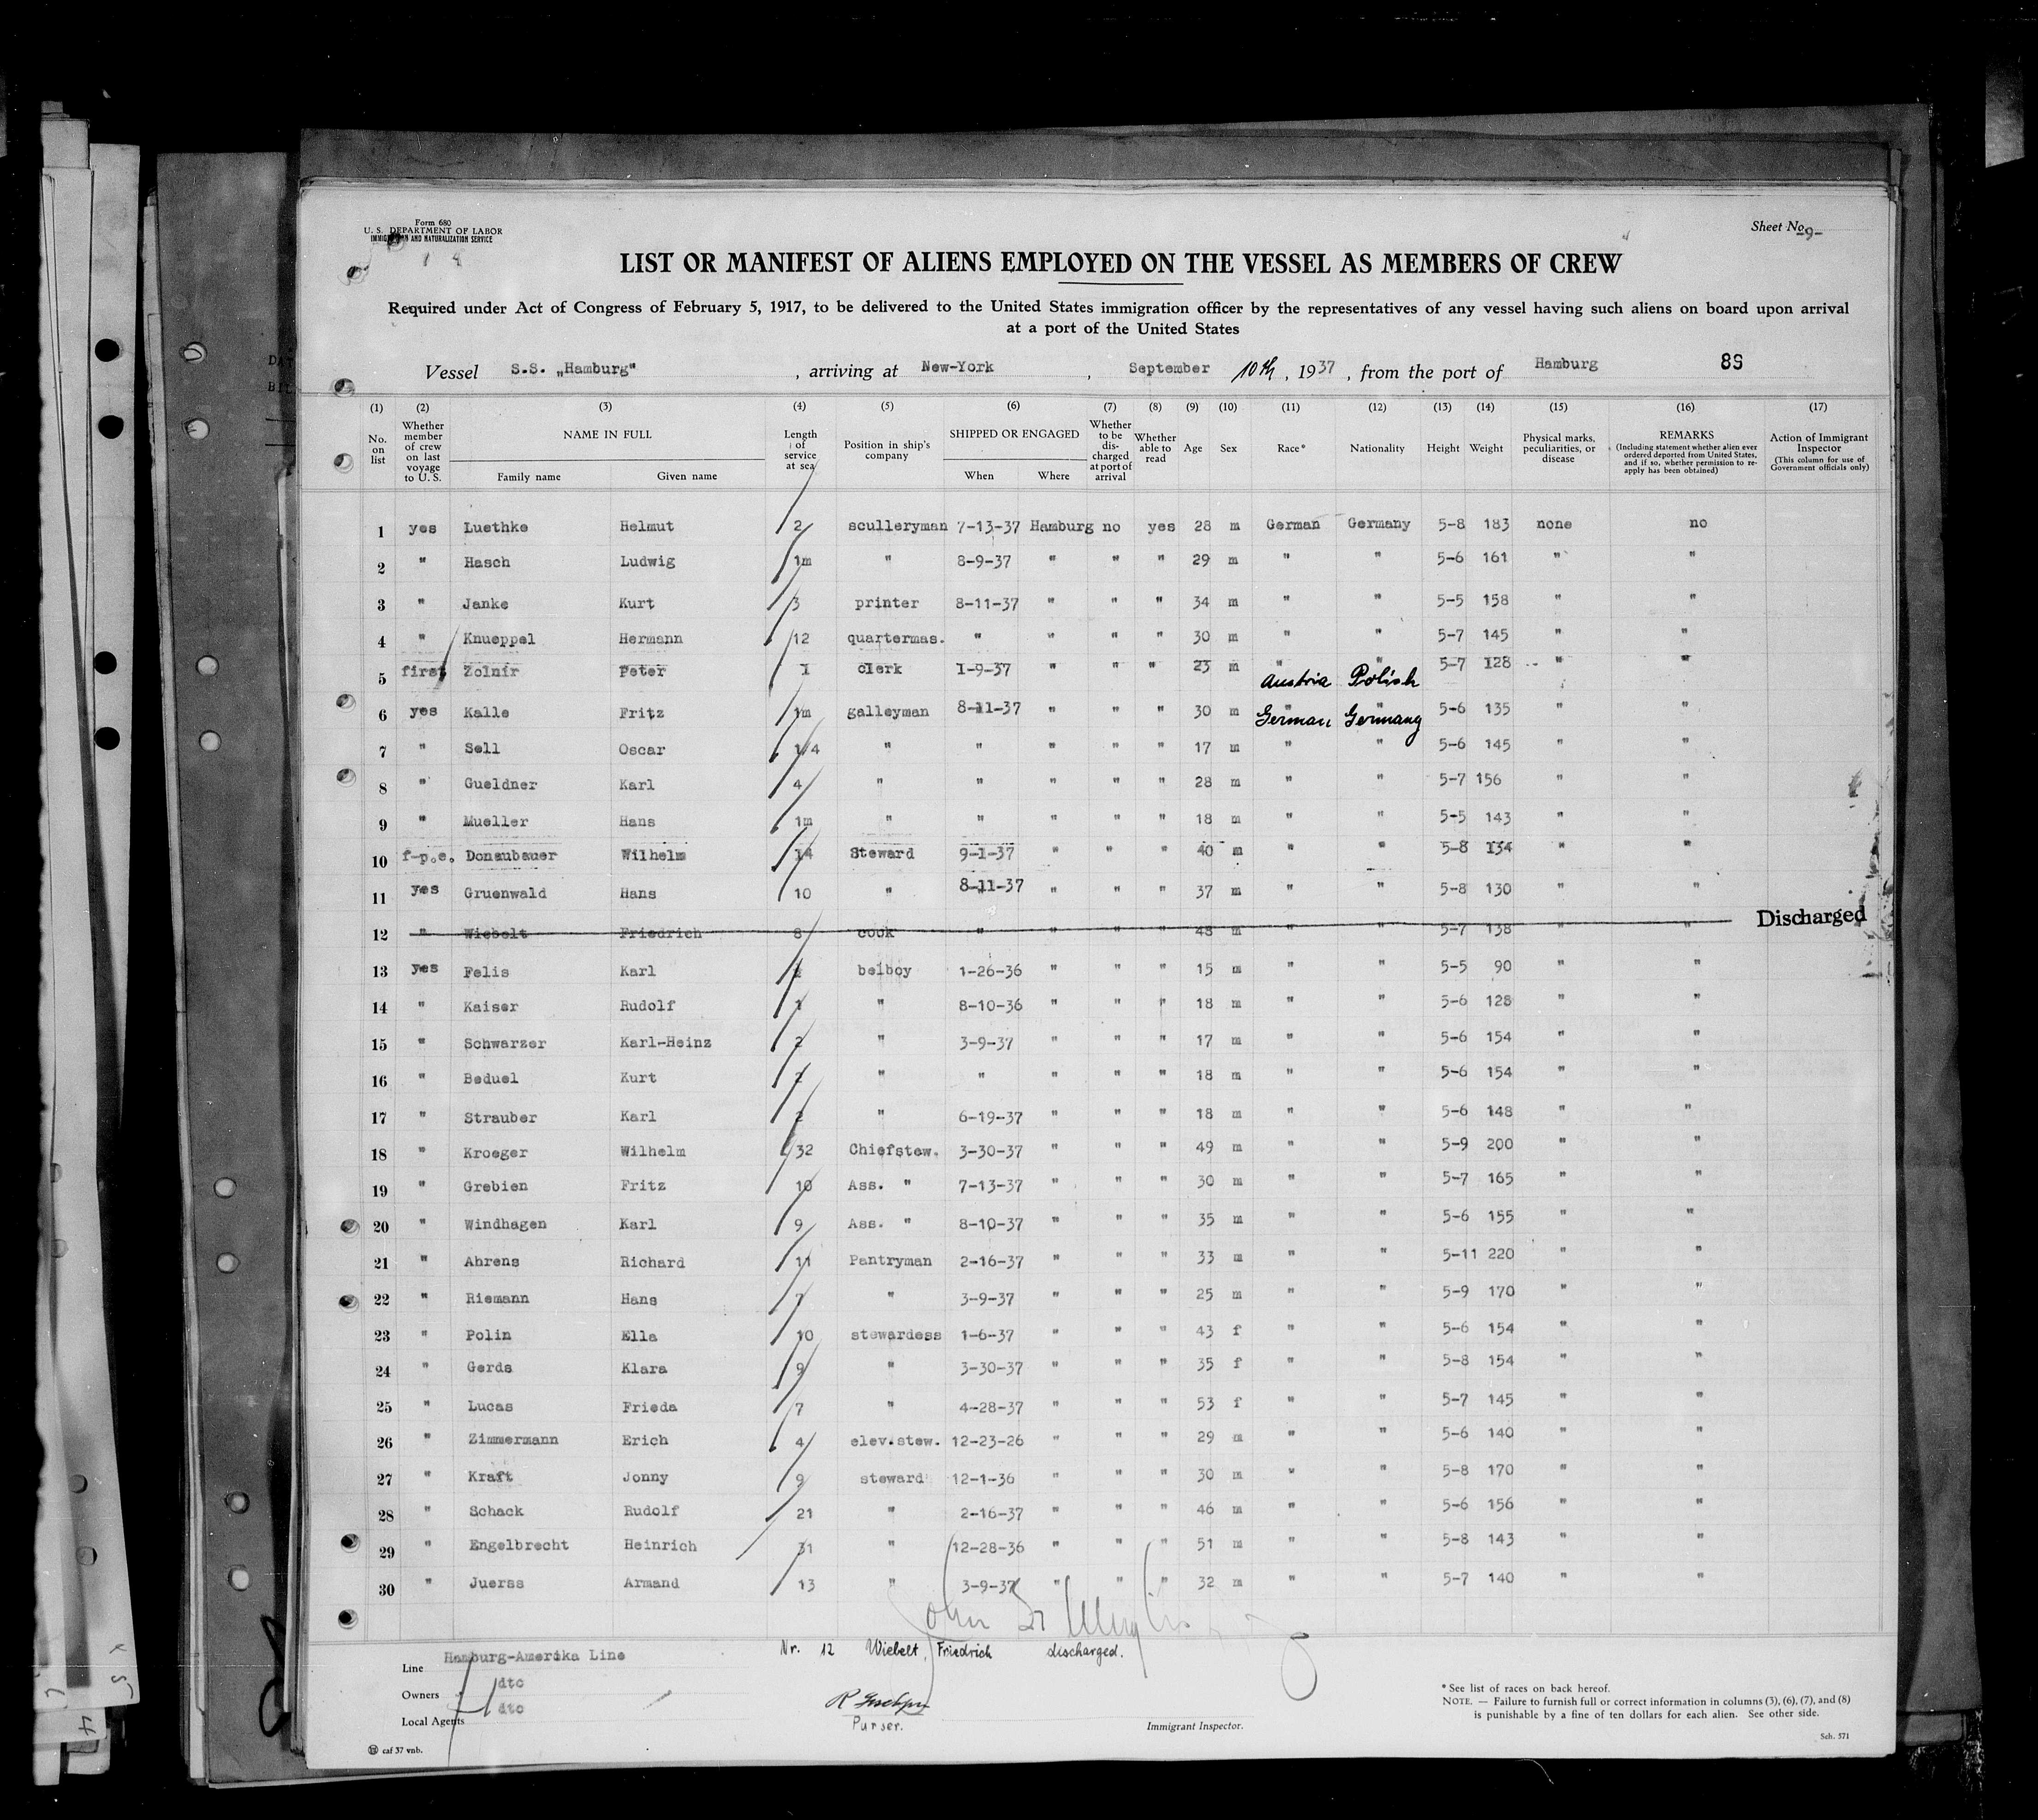 Form 680
U. S. DEPARTMENT OF LABOR
IMMIGRATION AND NATURALIZATION SERVICE
Sheet No. -9-
LIST OR MANIFEST OF ALIENS EMPLOYED ON THE VESSEL AS MEMBERS OF CREW
Required under Act of Congress of February 5, 1917, to be delivered to the United States immigration officer by the representatives of any vessel having such aliens on board upon arrival
at a port of the United States
Vessel S.S. „Hamburg" , arriving at New-York , September 10th , 1937 , from the port of Hamburg 89
(1) (2) (3) (4) (5) (6) (7) (8) (9) (10) (11) (12) (13) (14) (15) (16) (17)
No. on list Whether member of crew on last voyage to U. S. NAME IN FULL Family name Given name Length of service at sea Position in ship's company SHIPPED OR ENGAGED When Where Whether to be discharged at port of arrival Whether able to read Age Sex Race* Nationality Height Weight Physical marks, peculiarities, or disease REMARKS (Including statement whether alien ever ordered deported from United States, and if so, whether permission to re-apply has been obtained) Action of Immigrant Inspector (This column for use of Government officials only)
1 yes Luethke Helmut 2 sculleryman 7-13-37 Hamburg no yes 28 m German Germany 5-8 183 none no
2 " Hasch Ludwig 1m " 8-9-37 " " " 29 m " " 5-6 161 " "
3 " Janke Kurt 3 printer 8-11-37 " " " 34 m " " 5-5 158 " "
4 " Knueppel Hermann 12 quartermas. " " " " 30 m " " 5-7 145 " "
5 first Zolnir Peter 1 clerk 1-9-37 " " " 23 m " Austria " Polish 5-7 128 " "
6 yes Kalle Fritz 1m galleyman 8-11-37 " " " 30 m " German " Germany 5-6 135 " "
7 " Sell Oscar 1/4 " " " " " 17 m " " 5-6 145 " "
8 " Gueldner Karl 4 " " " " " 28 m " " 5-7 156 " "
9 " Mueller Hans 1m " " " " " 18 m " " 5-5 143 " "
10 f-p.e. Donaubauer Wilhelm 14 Steward 9-1-37 " " " 40 m " " 5-8 134 " "
11 yes Gruenwald Hans 10 " 8-11-37 " " " 37 m " " 5-8 130 " "
12 " Wiebelt Friedrich 8 cook " " " " 48 m " " 5-7 138 " " Discharged
13 yes Felis Karl belboy 1-26-36 " " " 15 m " " 5-5 90 " "
14 " Kaiser Rudolf 1 " 8-10-36 " " " 18 m " " 5-6 128 " "
15 " Schwarzer Karl-Heinz 2 " 3-9-37 " " " 17 m " " 5-6 154 " "
16 " Beduel Kurt 2 " " " " " 18 m " " 5-6 154 " "
17 " Strauber Karl 2 " 6-19-37 " " " 18 m " " 5-6 148 " "
18 " Kroeger Wilhelm 32 Chiefstew. 3-30-37 " " " 49 m " " 5-9 200 " "
19 " Grebien Fritz 10 Ass. " 7-13-37 " " " 30 m " " 5-7 165 " "
20 " Windhagen Karl 9 Ass. " 8-10-37 " " " 35 m " " 5-6 155 " "
21 " Ahrens Richard 11 Pantryman 2-16-37 " " " 33 m " " 5-11 220 " "
22 " Riemann Hans 7 " 3-9-37 " " " 25 m " " 5-9 170 " "
23 " Polin Ella 10 stewardess 1-6-37 " " " 43 f " " 5-6 154 " "
24 " Gerds Klara 9 " 3-30-37 " " " 35 f " " 5-8 154 " "
25 " Lucas Frieda 7 " 4-28-37 " " " 53 f " " 5-7 145 " "
26 " Zimmermann Erich 4 elev.stew. 12-23-26 " " " 29 m " " 5-6 140 " "
27 " Kraft Jonny 9 steward 12-1-36 " " " 30 m " " 5-8 170 " "
28 " Schack Rudolf 21 " 2-16-37 " " " 46 m " " 5-6 156 " "
29 " Engelbrecht Heinrich 31 " 12-28-36 " " " 51 m " " 5-8 143 " "
30 " Juerss Armand 13 " 3-9-37 " " " 32 m " " 5-7 140 " "
John
Nr. 12 Wiebelt, Friedrich discharged.
Line Hamburg-Amerika Line
Owners dto
Local Agents dto
R
Purser.
Immigrant Inspector.
* See list of races on back hereof.
NOTE. — Failure to furnish full or correct information in columns (3), (6), (7), and (8)
is punishable by a fine of ten dollars for each alien. See other side.
caf 37 vnb.
Sch. 571